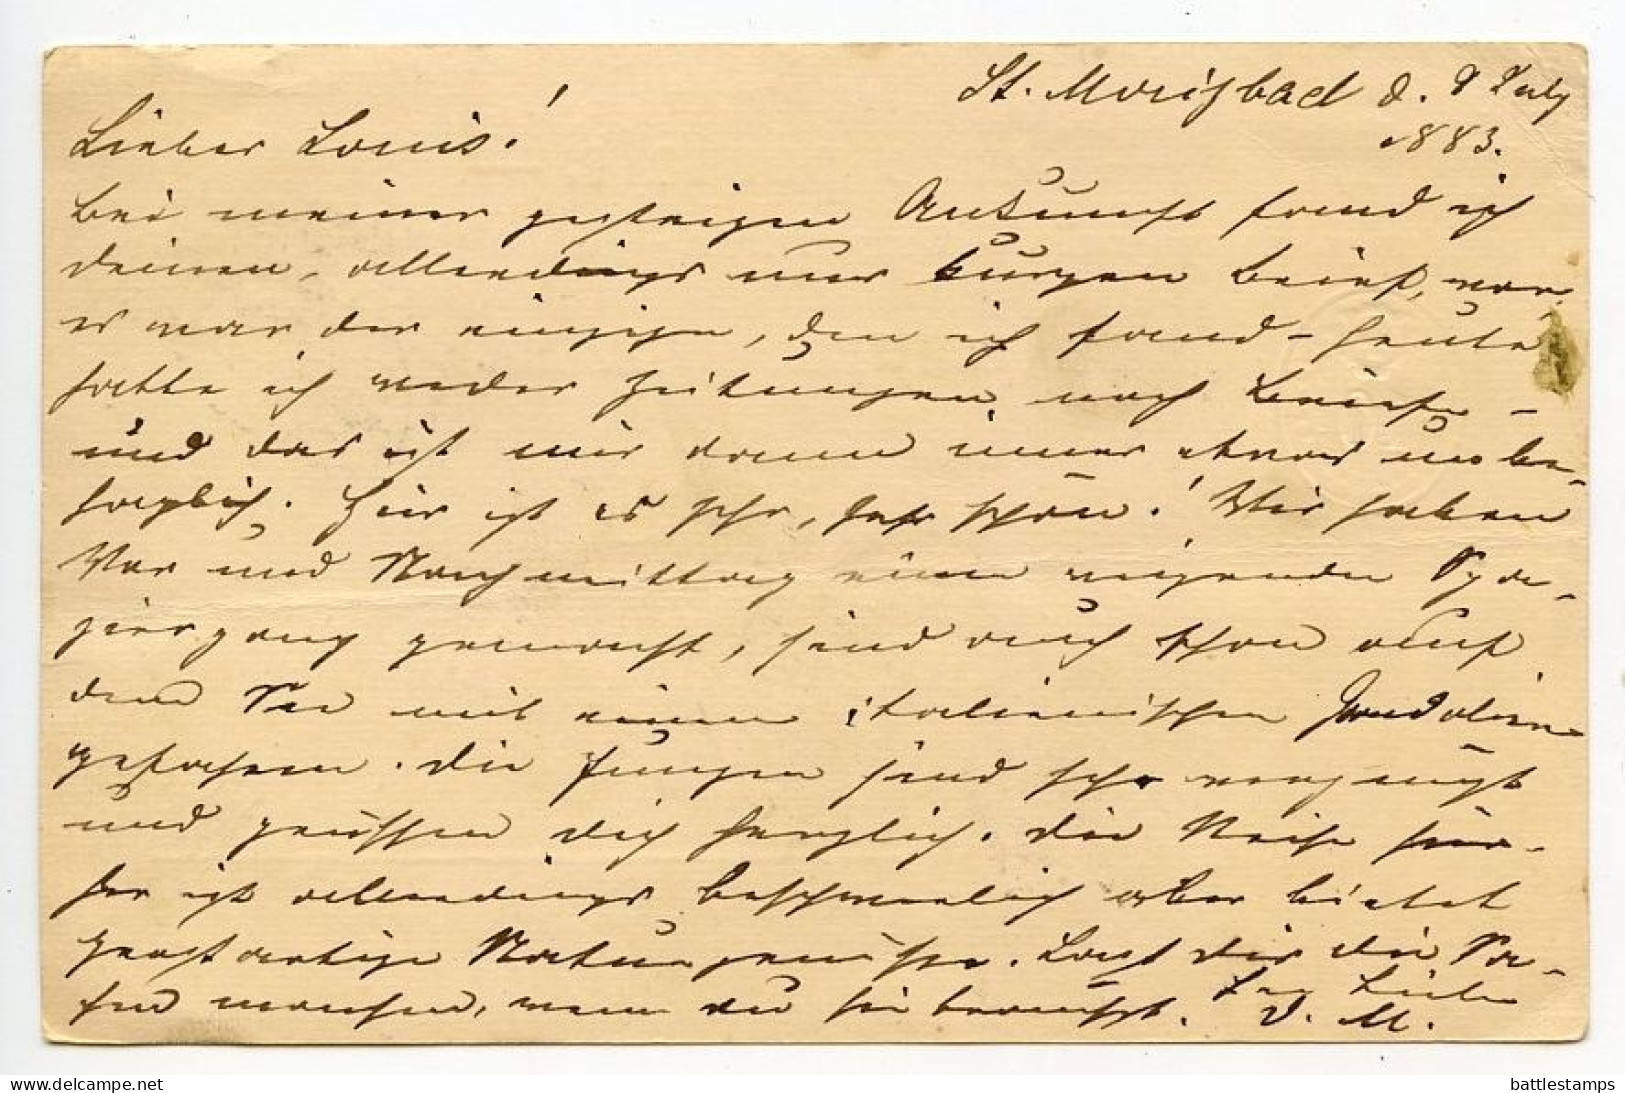 St. Morizbad d. 9 July
1883.
Lieber Louis!
bei meiner gestrigen Ankunft fand ich
deinen, allerdings nur kurzen Brief,
es war der einzige, den ich fand - heute
hatte ich weder Zeitungen noch Briefe -
und das ist mir dann immer etwas unbe-
haglich. Hier ist es sehr, sehr schön! Wir haben
Vor und Nachmittag einen Spa-
ziergang gemacht, sind auch schon auf
dem See mit einem italienischen
gefahren. Die Jungen sind sehr vergnügt
und grüssen dich herzlich. Die Reise hier-
her ist allerdings beschwerlich aber bietet
grossartige Naturgenüsse. Lass dir die
machen, wenn du sie brauchst.
D. M.
battlestamps
www.delcampe.net